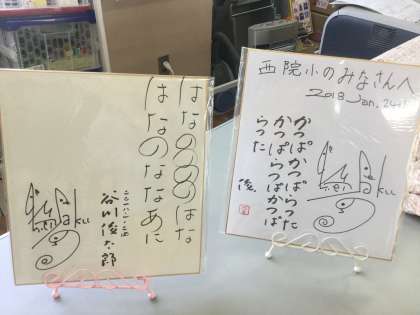 はなののののはな
はなのななあに
二〇一八・一・二四
谷川俊太郎
西院小のみなさんへ
2018 Jan. 24
かっぱかっぱらった
かっぱらっぱかっぱ
らった
俊